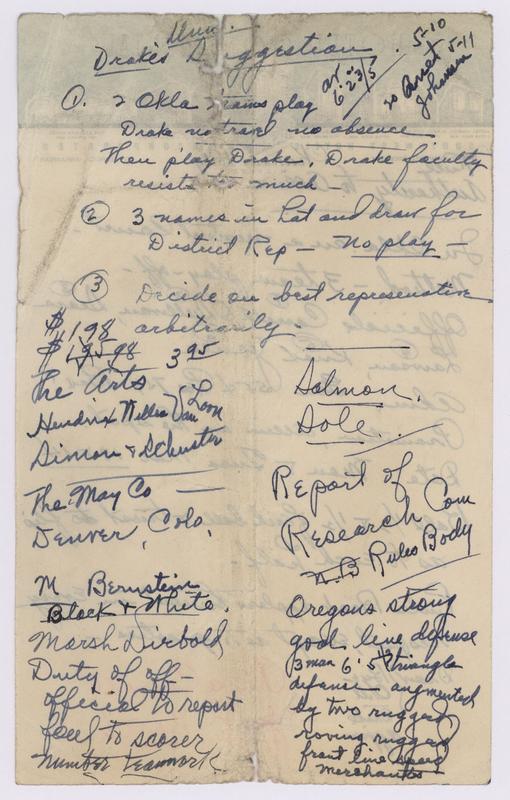 Drake's Suggestion.
5-10
5-11
av
6' 2 3/5"
① . 2 Okla Teams play
Drake no travel no absence
Then play Drake. Drake faculty
resists too much —
② 3 names in hat and draw for
District Rep — No play —
③ Decide on best representative
arbitrarily.
$1.98
$1.95 98 3 95
The Arts
Hendrix Willem Van Loon
Simon & Schuster
The May Co —
Denver, Colo,
M Bernstein
Black & White.
Marsh Diebold
Duty of off—
official to report
foul to scorer
Number teamwork.
Salmon.
Sole.
Report of
Research Com
N.B Rules Body
Oregons strong
goal line defense
3 man 6' 5 1/2" triangle
defense augmented
by two rugged
roving rugged
front line speed
merchants